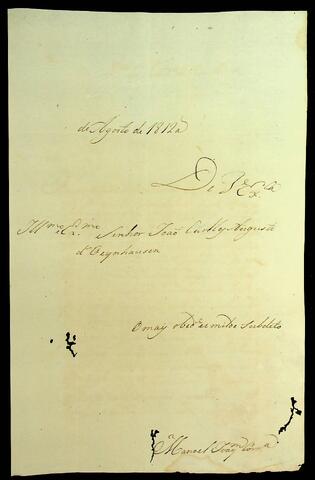 de Agosto de 1812 a
De V. Exca.
Illmo e Exmo Senhor João Carlos Augusto
d'Oeynhausen
O may obede e umilde Subdito
Manoel